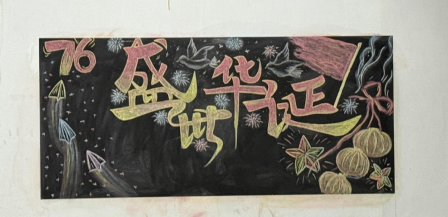 76
盛世华诞